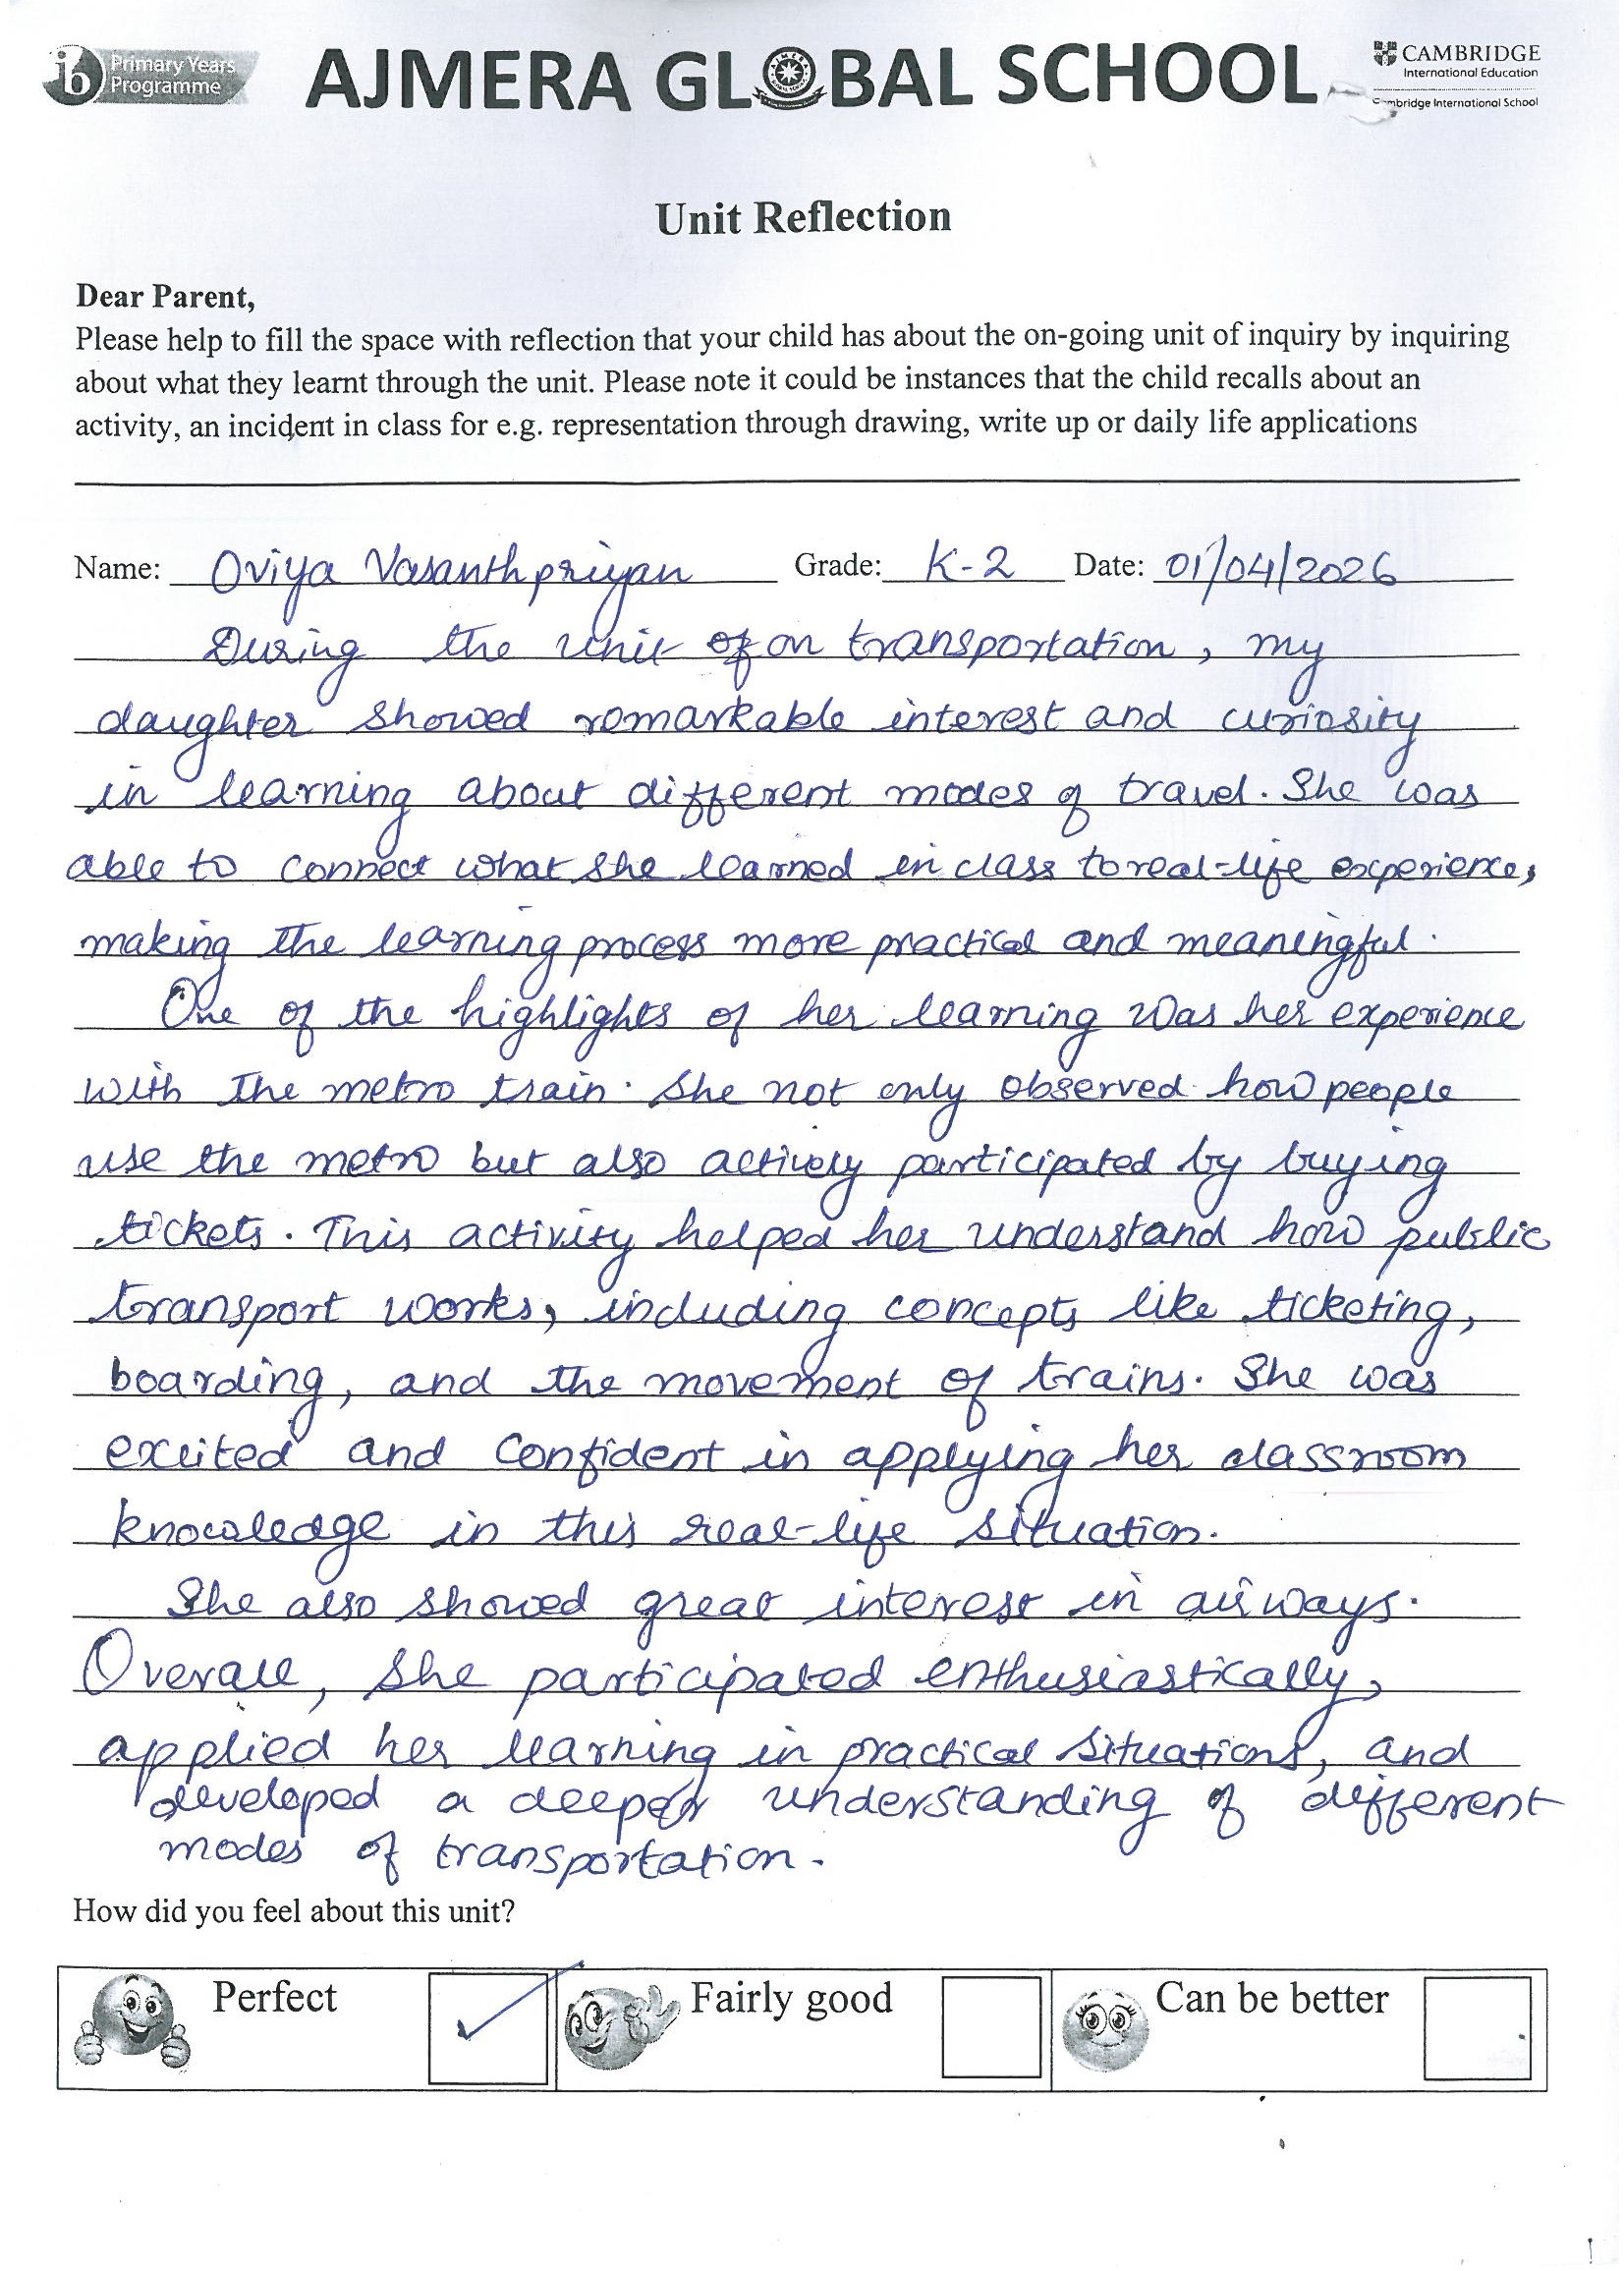 ib Primary Years Programme
AJMERA GLOBAL SCHOOL
CAMBRIDGE
International Education
Cambridge International School
Unit Reflection
Dear Parent,
Please help to fill the space with reflection that your child has about the on-going unit of inquiry by inquiring
about what they learnt through the unit. Please note it could be instances that the child recalls about an
activity, an incident in class for e.g. representation through drawing, write up or daily life applications
Name: Oviya Vasanthpriyan Grade: K-2 Date: 01/04/2026
During the unit of on transportation, my
daughter showed remarkable interest and curiosity
in learning about different modes of travel. She was
able to connect what she learned in class to real-life experience,
making the learning process more practical and meaningful.
One of the highlights of her learning was her experience
with the metro train. She not only observed how people
use the metro but also actively participated by buying
tickets. This activity helped her understand how public
transport works, including concepts like ticketing,
boarding, and the movement of trains. She was
excited and confident in applying her classroom
knowledge in this real-life situation.
She also showed great interest in airways.
Overall, she participated enthusiastically,
applied her learning in practical situations, and
developed a deeper understanding of different
modes of transportation.
How did you feel about this unit?
Perfect ✓ Fairly good Can be better